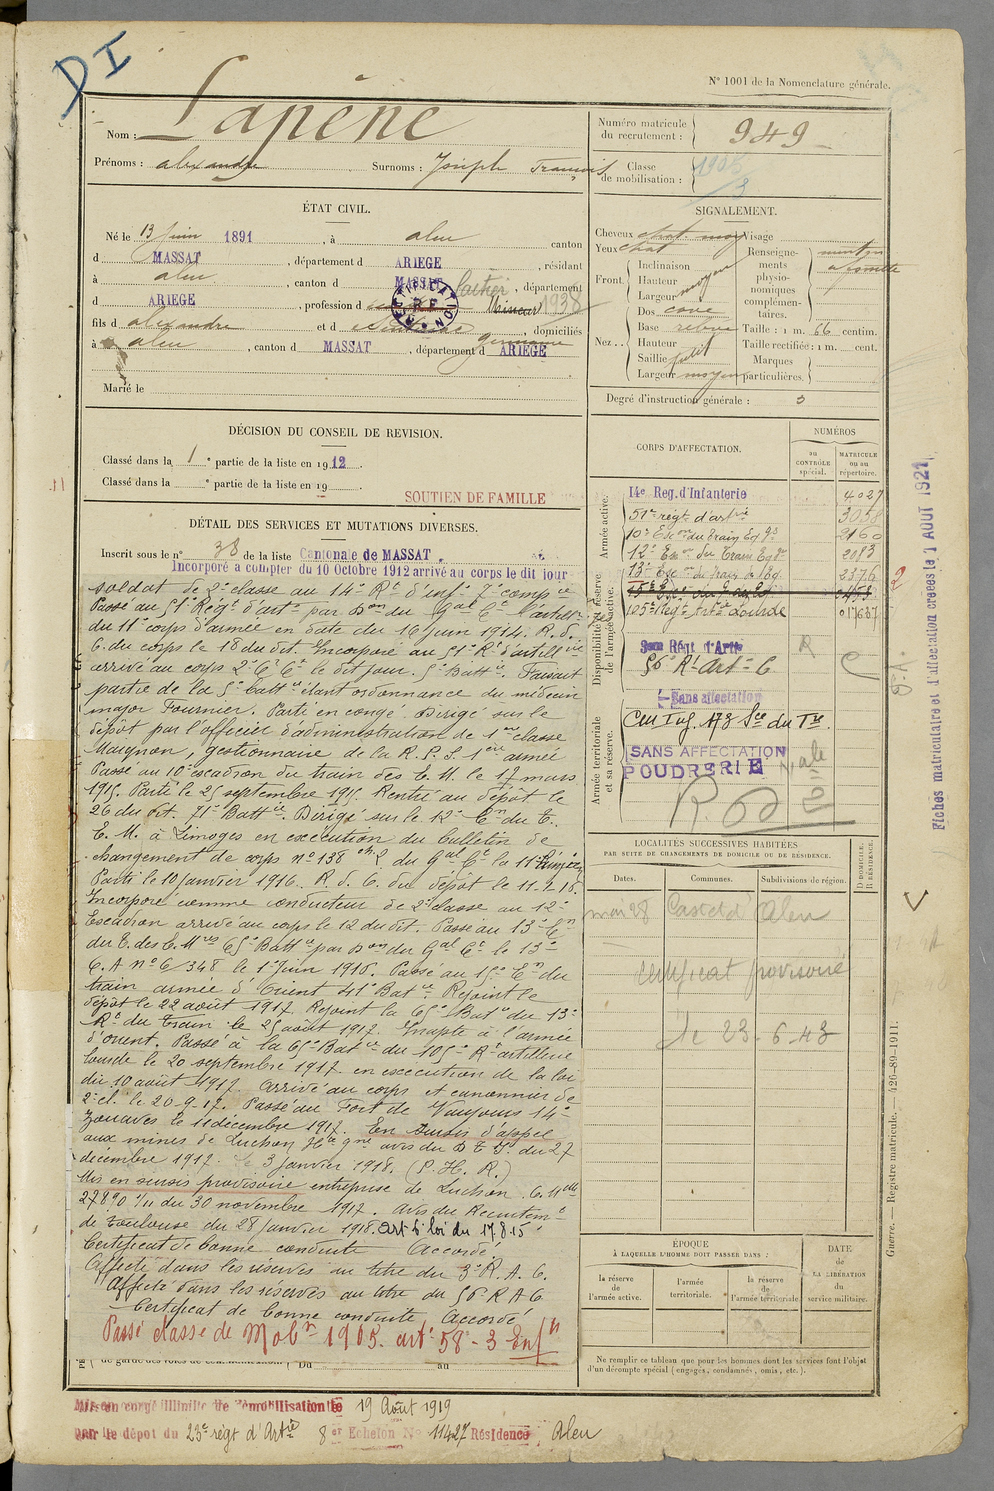 DI
N° 1001 de la Nomenclature générale.
Nom : Lapène
Prénoms : alexandre Surnoms : Joseph François
Numéro matricule du recrutement : 949
Classe de mobilisation : 1905/3
ÉTAT CIVIL.
Né le 13 Juin 1891, à aleu canton
d MASSAT, département d ARIEGE, résidant
à aleu, canton d MASSAT, département
d ARIEGE, profession d Mineur 1938
fils d alexandre et d domiciliés
à aleu, canton d MASSAT, département d ARIEGE
Marié le
RECTIFICATION R.F.
SIGNALEMENT.
Cheveux chat moy Visage
Yeux chat
Front Inclinaison
Hauteur moyen
Largeur
Nez Dos cave
Base relevée
Hauteur
Saillie petit
Largeur moyen
Renseignements physionomiques complémentaires.
Taille : 1 m. 66 centim.
Taille rectifiée : 1 m. cent.
Marques particulières.
Degré d'instruction générale : 3
DÉCISION DU CONSEIL DE REVISION.
Classé dans la 1e partie de la liste en 1912.
Classé dans la e partie de la liste en 19
SOUTIEN DE FAMILLE
DÉTAIL DES SERVICES ET MUTATIONS DIVERSES.
Inscrit sous le n° 38 de la liste Cantonale de MASSAT.
Incorporé à compter du 10 Octobre 1912 arrivé au corps le dit jour
soldat de 2e classe au 14e Rt d'Inf. 7e compie
Passé au 51e Régt d'artie par Don du Gal Ct l'artillie
du 11e corps d'armée en date du 16 juin 1914. R. d.
C. du corps le 18 du dit. Incorporé au 51e Rt d'artillie
arrivé au corps 2e Ct Ct le dit jour. 5e Battie. Faisait
partie de la 5e battie étant ordonnance du médecin
major Fournier. Parti en congé. Dirigé sur le
dépôt par l'officier d'administration de 1ere classe
Maignon, gestionnaire de la R. P. S. 1ere armée
Passé au 10e escadron du train des E. M. le 17 mars
1915. Parti le 25 septembre 1915. Rentré au dépôt le
26 du dit. 71e Battie. Dirigé sur le 12e En du T.
E. M. à Limoges en exécution du bulletin de
changement de corps n° 138 du Gal Ct la 11e Région
Parti le 10 Janvier 1916. R. d. C. du dépôt le 11.1.16.
Incorporé comme conducteur de 2e classe au 12e
Escadron arrivé au corps le 12 du dit. Passé au 13e En
du T. des E. Mres 65e Battie par Don du Gal Ct le 13e
C. A n° 6/348 le 1e Juin 1916. Passé au 15e En du
train armée d'Orient 41e Batie. Rejoint le
dépôt le 22 août 1917. Rejoint la 65e Batie du 13e
Rt du Train le 25 août 1917. Inapte à l'armée
d'orient. Passé à la 65e Batie du 105e Rt artillerie
lourde le 20 septembre 1917 en exécution de la loi
du 10 août 1917. Arrivé au corps et canonnier de
2e cl. le 20-9-17. Passé au Fort de Vaujours 14e
Zouaves le 11 décembre 1917. En sursis d'appel
aux mines de Luchon Hte Gne avis du D T P. du 27
décembre 1917. le 3 Janvier 1918. (P. H. R.)
Mis en sursis provisoire entreprise de Luchon. C. Mlle
27890 1/11 du 30 novembre 1917. Avis du Recrutemt
de Toulouse du 28 Janvier 1918. Art 6 loi du 17.8.15.
Certificat de bonne conduite Accordé.
Affecté dans les réserves au titre du 3e R. A. C.
Affecté dans les réserves au titre du 56e R A C
Certificat de bonne conduite Accordé
Passé classe de Mobon 1905. art 58 - 3 Enfts
Du au
CORPS D'AFFECTATION.
NUMÉROS
au CONTRÔLE spécial.
MATRICULE ou au répertoire.
Armée active.
Disponibilité et réserve de l'armée active.
Armée territoriale et sa réserve.
14e Reg. d'Infanterie 4027
51e régt d'artie 3058
10e Escon du Train Eq gs 2160
12e Escon du Train Eq gs 2093
13e Escon du train des Eq. 2376
105e Régt Artie Lourde 017637
3eme Régt d'Artie
56e Rt Art C
Sans affectation
SANS AFFECTATION
POUDRERIE
R. D
LOCALITÉS SUCCESSIVES HABITÉES
PAR SUITE DE CHANGEMENTS DE DOMICILE OU DE RÉSIDENCE.
Dates. Communes. Subdivisions de région. D DOMICILE. R RÉSIDENCE.
mai 28 Castet d'Aleu
certificat provisoire
le 23-6-43
ÉPOQUE
À LAQUELLE L'HOMME DOIT PASSER DANS :
la réserve de l'armée active.
l'armée territoriale.
la réserve de l'armée territoriale.
DATE de LA LIBÉRATION du service militaire.
Ne remplir ce tableau que pour les hommes dont les services font l'objet
d'un décompte spécial (engagés, condamnés, omis, etc.).
Fiches matriculaire et d'affectation créées le 1 AOUT 1921
Guerre. — Registre matricule. — 426-89-1911.
Mis en congé illimité de démobilisation le 19 Août 1919
par le dépôt du 23e régt d'Artie 8e Echelon N° 11427 Résidence Aleu